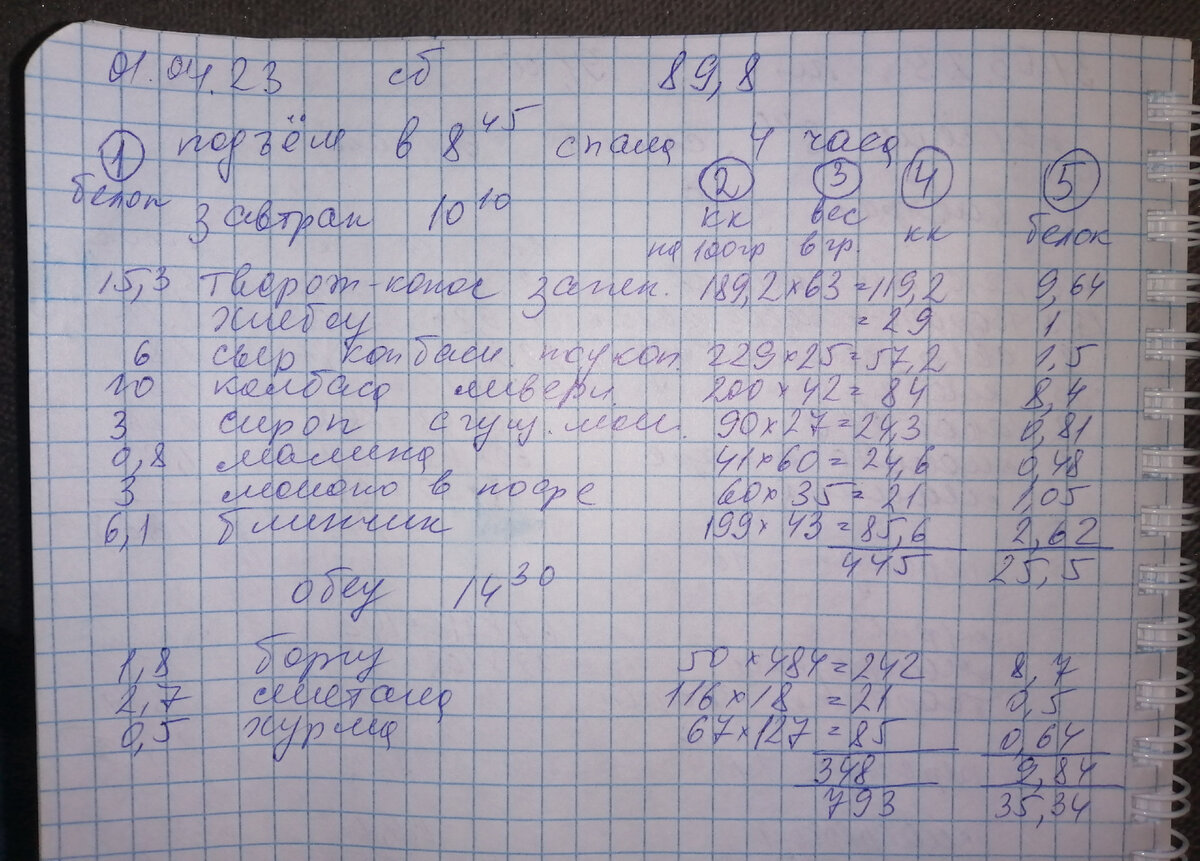 01.04.23 сб 89,8
① подъём в 8 45 спала 4 часа
② ③ ④ ⑤
белок завтрак 10 10 кк вес кк белок
на 100гр в гр.
15,3 творож-кокос запек. 189,2×63=119,2 9,64
хлебец =29 1
6 сыр колбасн. полукоп. 229×25=57,2 1,5
20 колбаса ливерн. 200×42=84 8,4
3 сироп сгущ. мол. 90×27=24,3 0,81
0,8 малина 41×60=24,6 0,48
3 молоко в кофе 60×35=21 1,05
6,1 блинчик 199×43=85,6 2,62
445 25,5
обед 14 30
1,8 борщ 50×484=242 8,7
2,7 сметана 116×18=21 0,5
0,5 хурма 67×127=85 0,64
348 9,84
793 35,34